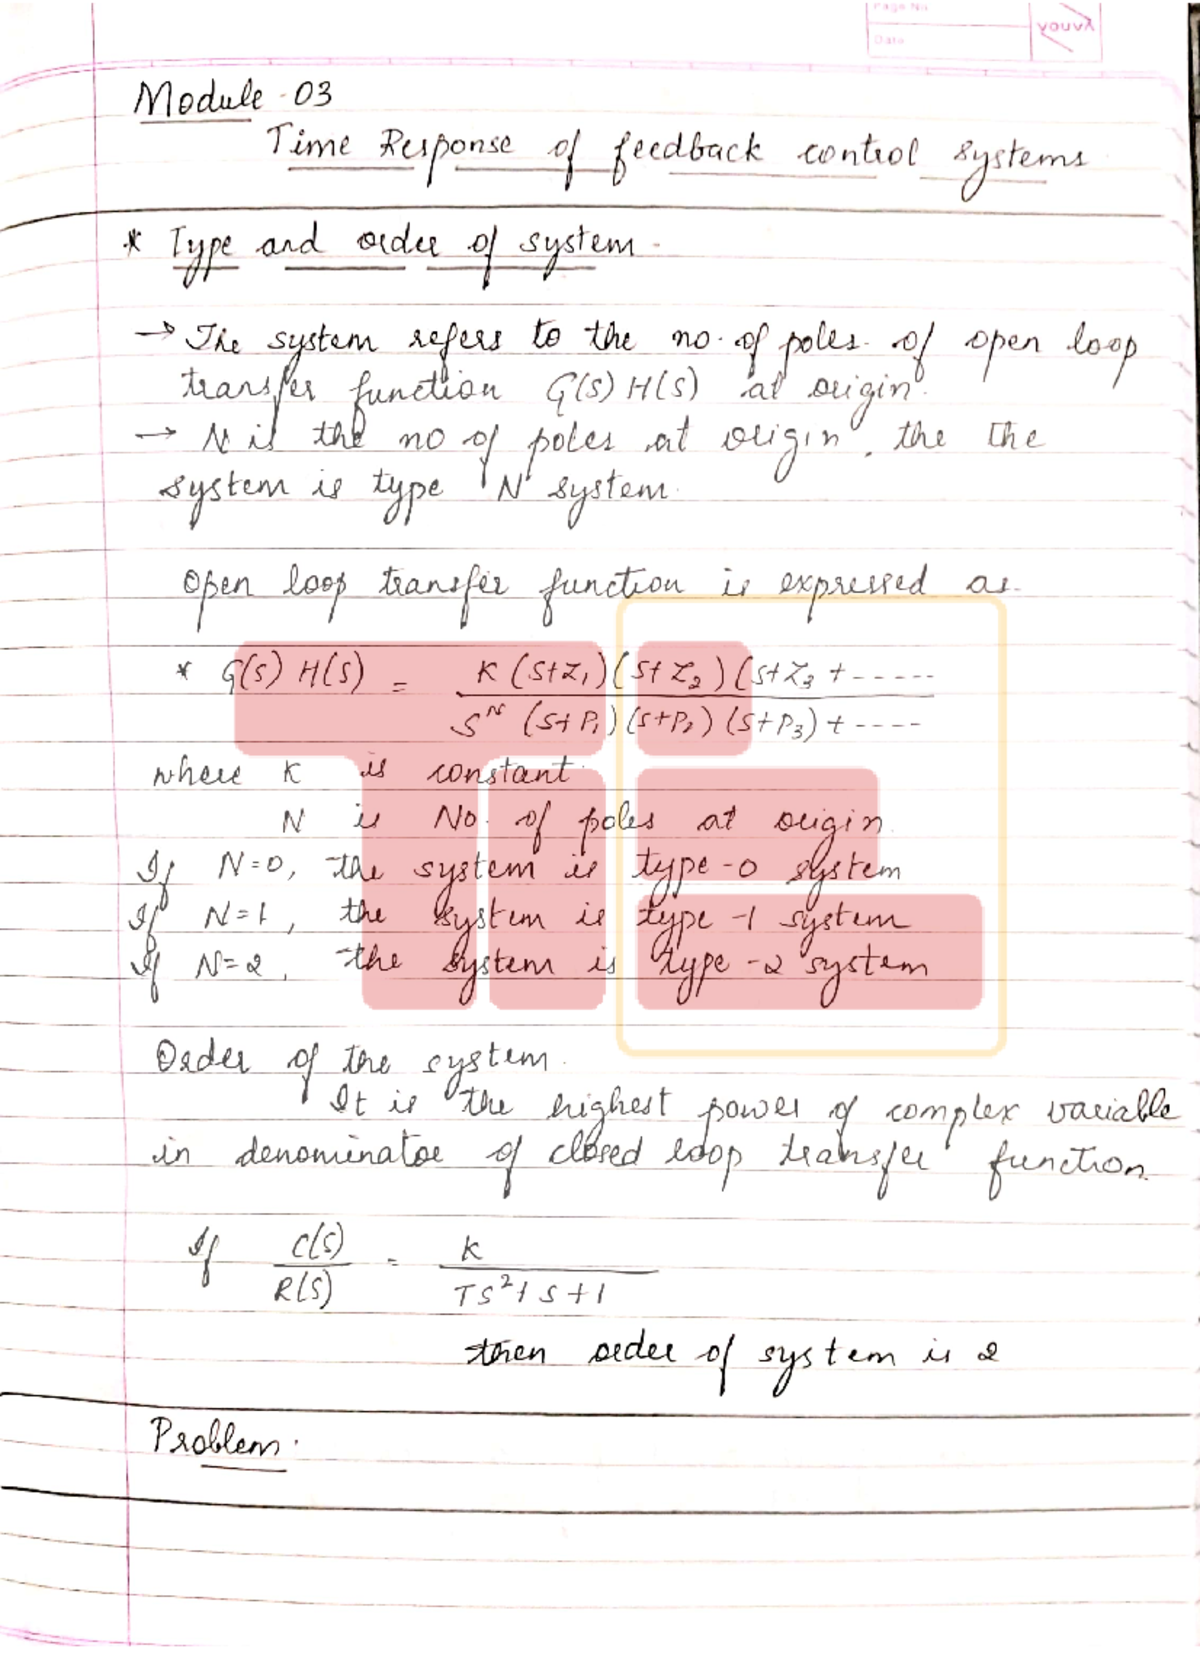 Page No
Date
YOUVA
Module - 03
Time Response of feedback control systems
* Type and order of system -
→ The system refers to the no. of poles of open loop
transfer function G(S) H(S) at origin.
→ N is the no of poles at origin, the the
system is type 'N' system.
Open loop transfer function is expressed as.
* G(S) H(S) = K (S+Z₁)(S+Z₂)(S+Z₃ + ------
Sᴺ (S+P₁)(S+P₂)(S+P₃) + ----
where K is constant
N is No. of poles at origin
If N=0, the system is type -0 system
If N=1, the system is type -1 system
If N=2, the system is type -2 system
Order of the system.
It is the highest power of complex variable
in denominator of closed loop transfer function.
If C(S) = K
R(S) TS²+S+1
then order of system is 2
Problem.